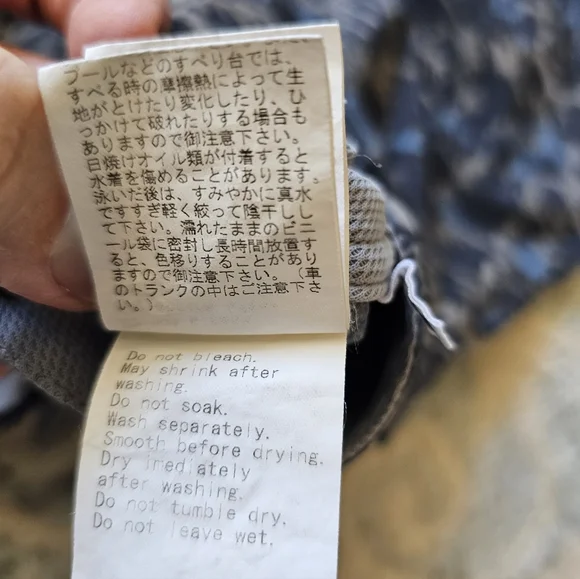 プールなどのすべり台では、
すべる時の摩擦熱によって生
地がとけたり変化したり、ひ
っかけて破れたりする場合も
ありますので御注意下さい。
日焼けオイル類が付着すると
水着を傷めることがあります。
泳いだ後は、すみやかに真水
ですすぎ軽く絞って陰干しし
て下さい。濡れたままのビニ
ール袋に密封し長時間放置す
ると、色移りすることがあり
ますので御注意下さい。（車
のトランクの中はご注意下さ
い。）
Do not bleach.
May shrink after
washing.
Do not soak.
Wash separately.
Smooth before drying.
Dry imediately
after washing.
Do not tumble dry.
Do not leave wet.